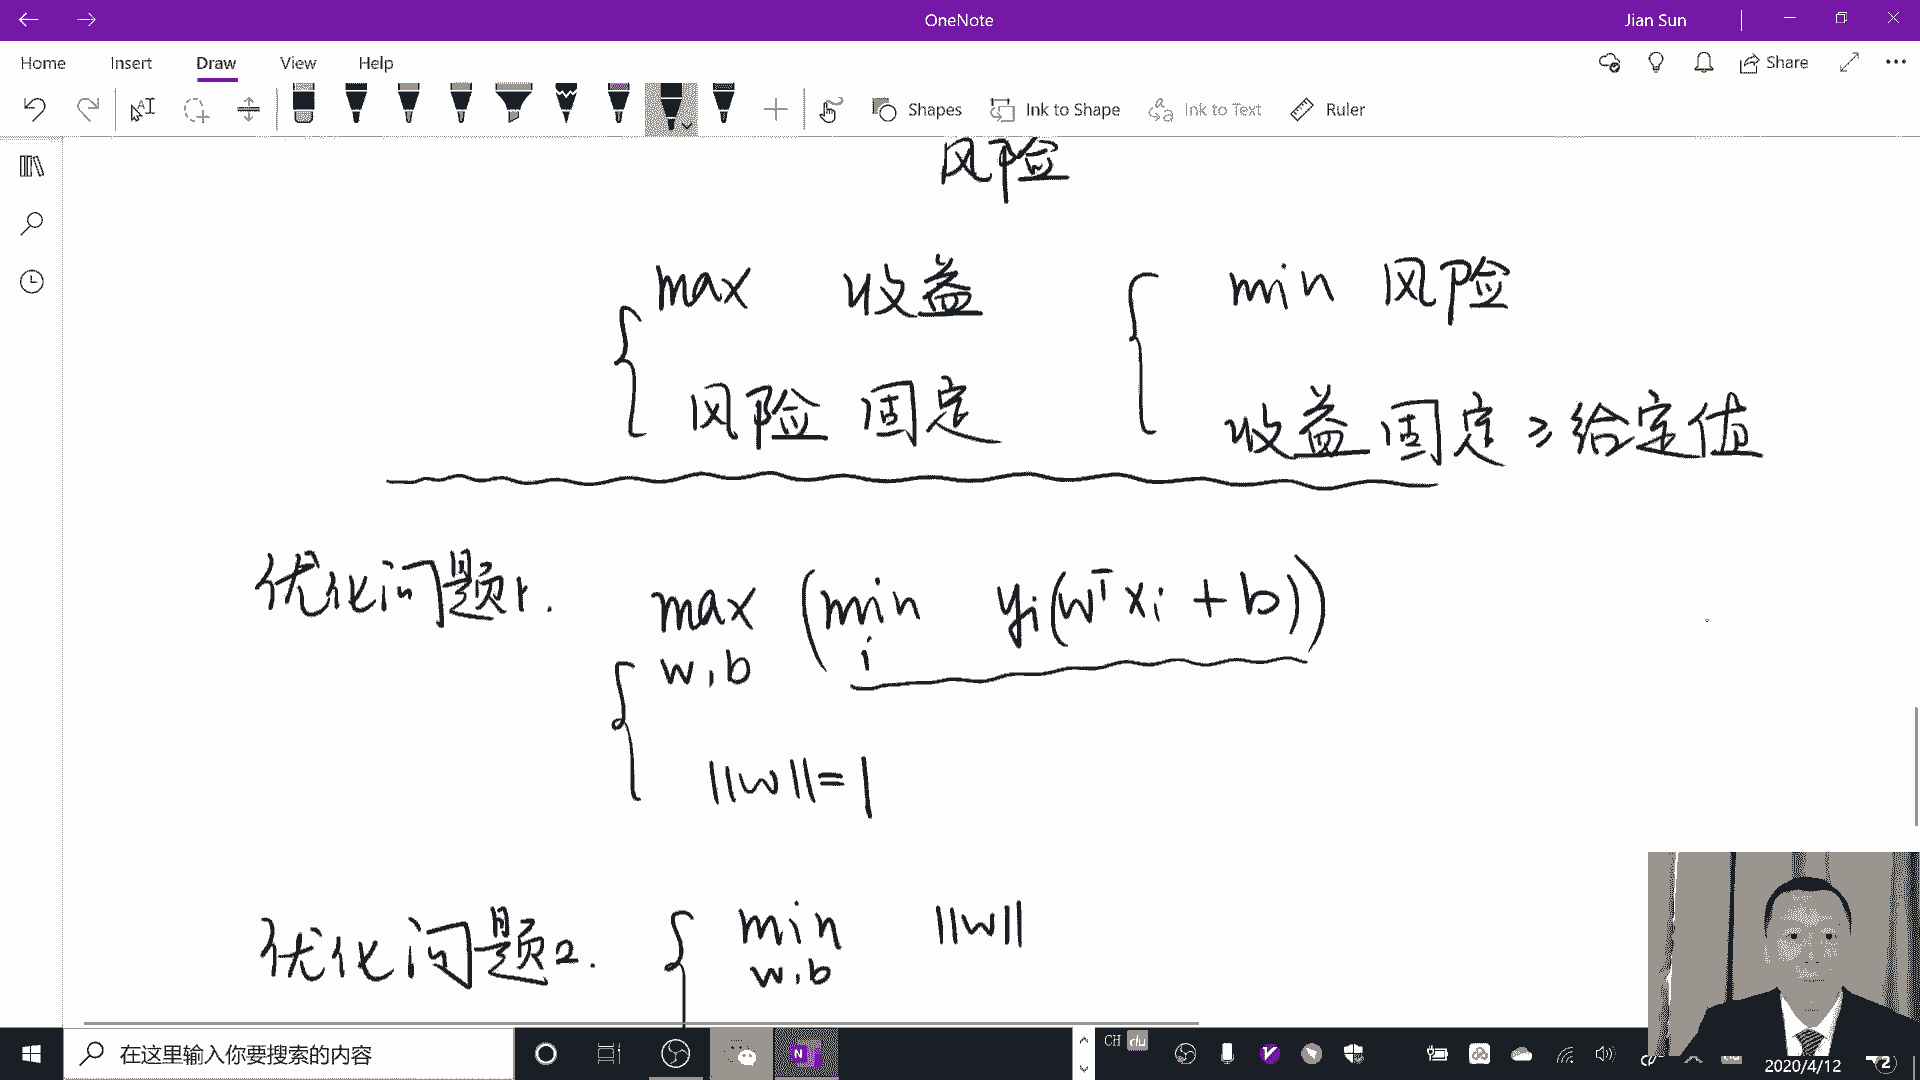 OneNote
Jian Sun
Home Insert Draw View Help
Share
Shapes Ink to Shape Ink to Text Ruler
风险
max 收益
风险 固定
min 风险
收益 固定 ≥ 给定值
优化问题1. max (min yi(wᵀxi + b))
w,b i
||w||=1
优化问题2. min ||w||
w,b
在这里输入你要搜索的内容
CH
2020/4/12
2